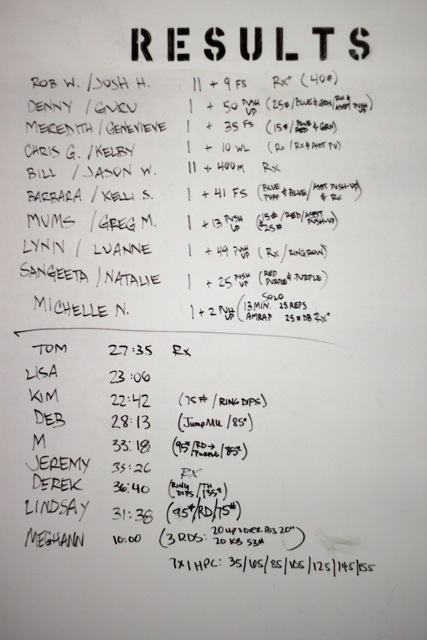 RESULTS
ROB W. / JOSH H. 11 + 9 FS Rx+ (40#)
DENNY / GURU 1 + 50 PUSH UP (25#/BLUE & GRN/RX & ASST PUSH UP)
MEREDITH / GENEVIEVE 1 + 35 FS (15#/BLUE RED & GRN)
CHRIS G. / KELBY 1 + 10 WL (Rx / Rx & ASST PU)
BILL / JASON W. 11 + 400M Rx
BARBARA / KELLI S. 1 + 41 FS (BLUE PURP & BLUE / ASST PUSH-UP & Rx)
MUMS / GREG M. 1 + 13 PUSH UP (15# & 25# /RED/ASST PUSH-UP)
LYNN / LUANNE 1 + 49 PUSH UP (Rx / RING ROW)
SANGEETA / NATALIE 1 + 25 PUSH UP (RED PURPLE & PURPLE)
MICHELLE N. 1 + 2 PUSH UP (SOLO 13 MIN. 25 REPS AMRAP 25# DB Rx+)
TOM 27:35 Rx
LISA 23:06
KIM 22:42 (75# / RING DIPS)
DEB 28:13 (JUMP MU / 85#)
M 33:18 (95#/RD→PURPLE/85#)
JEREMY 35:26 RX
DEREK 36:40 (RING DIPS / TH 135#)
LINDSAY 31:38 (95#/RD/75#)
MEGHANN 10:00 (3 RDS: 20 UP/OVER BJ 20" 20 KB 53#)
7X1 HPC: 35/65/85/105/125/145/155